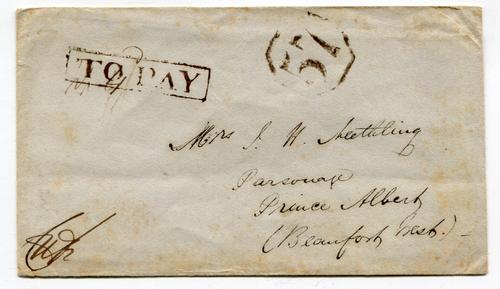 TO PAY
57
Mrs J. N. Neethling
Parsonage
Prince Albert
(Beaufort West.)